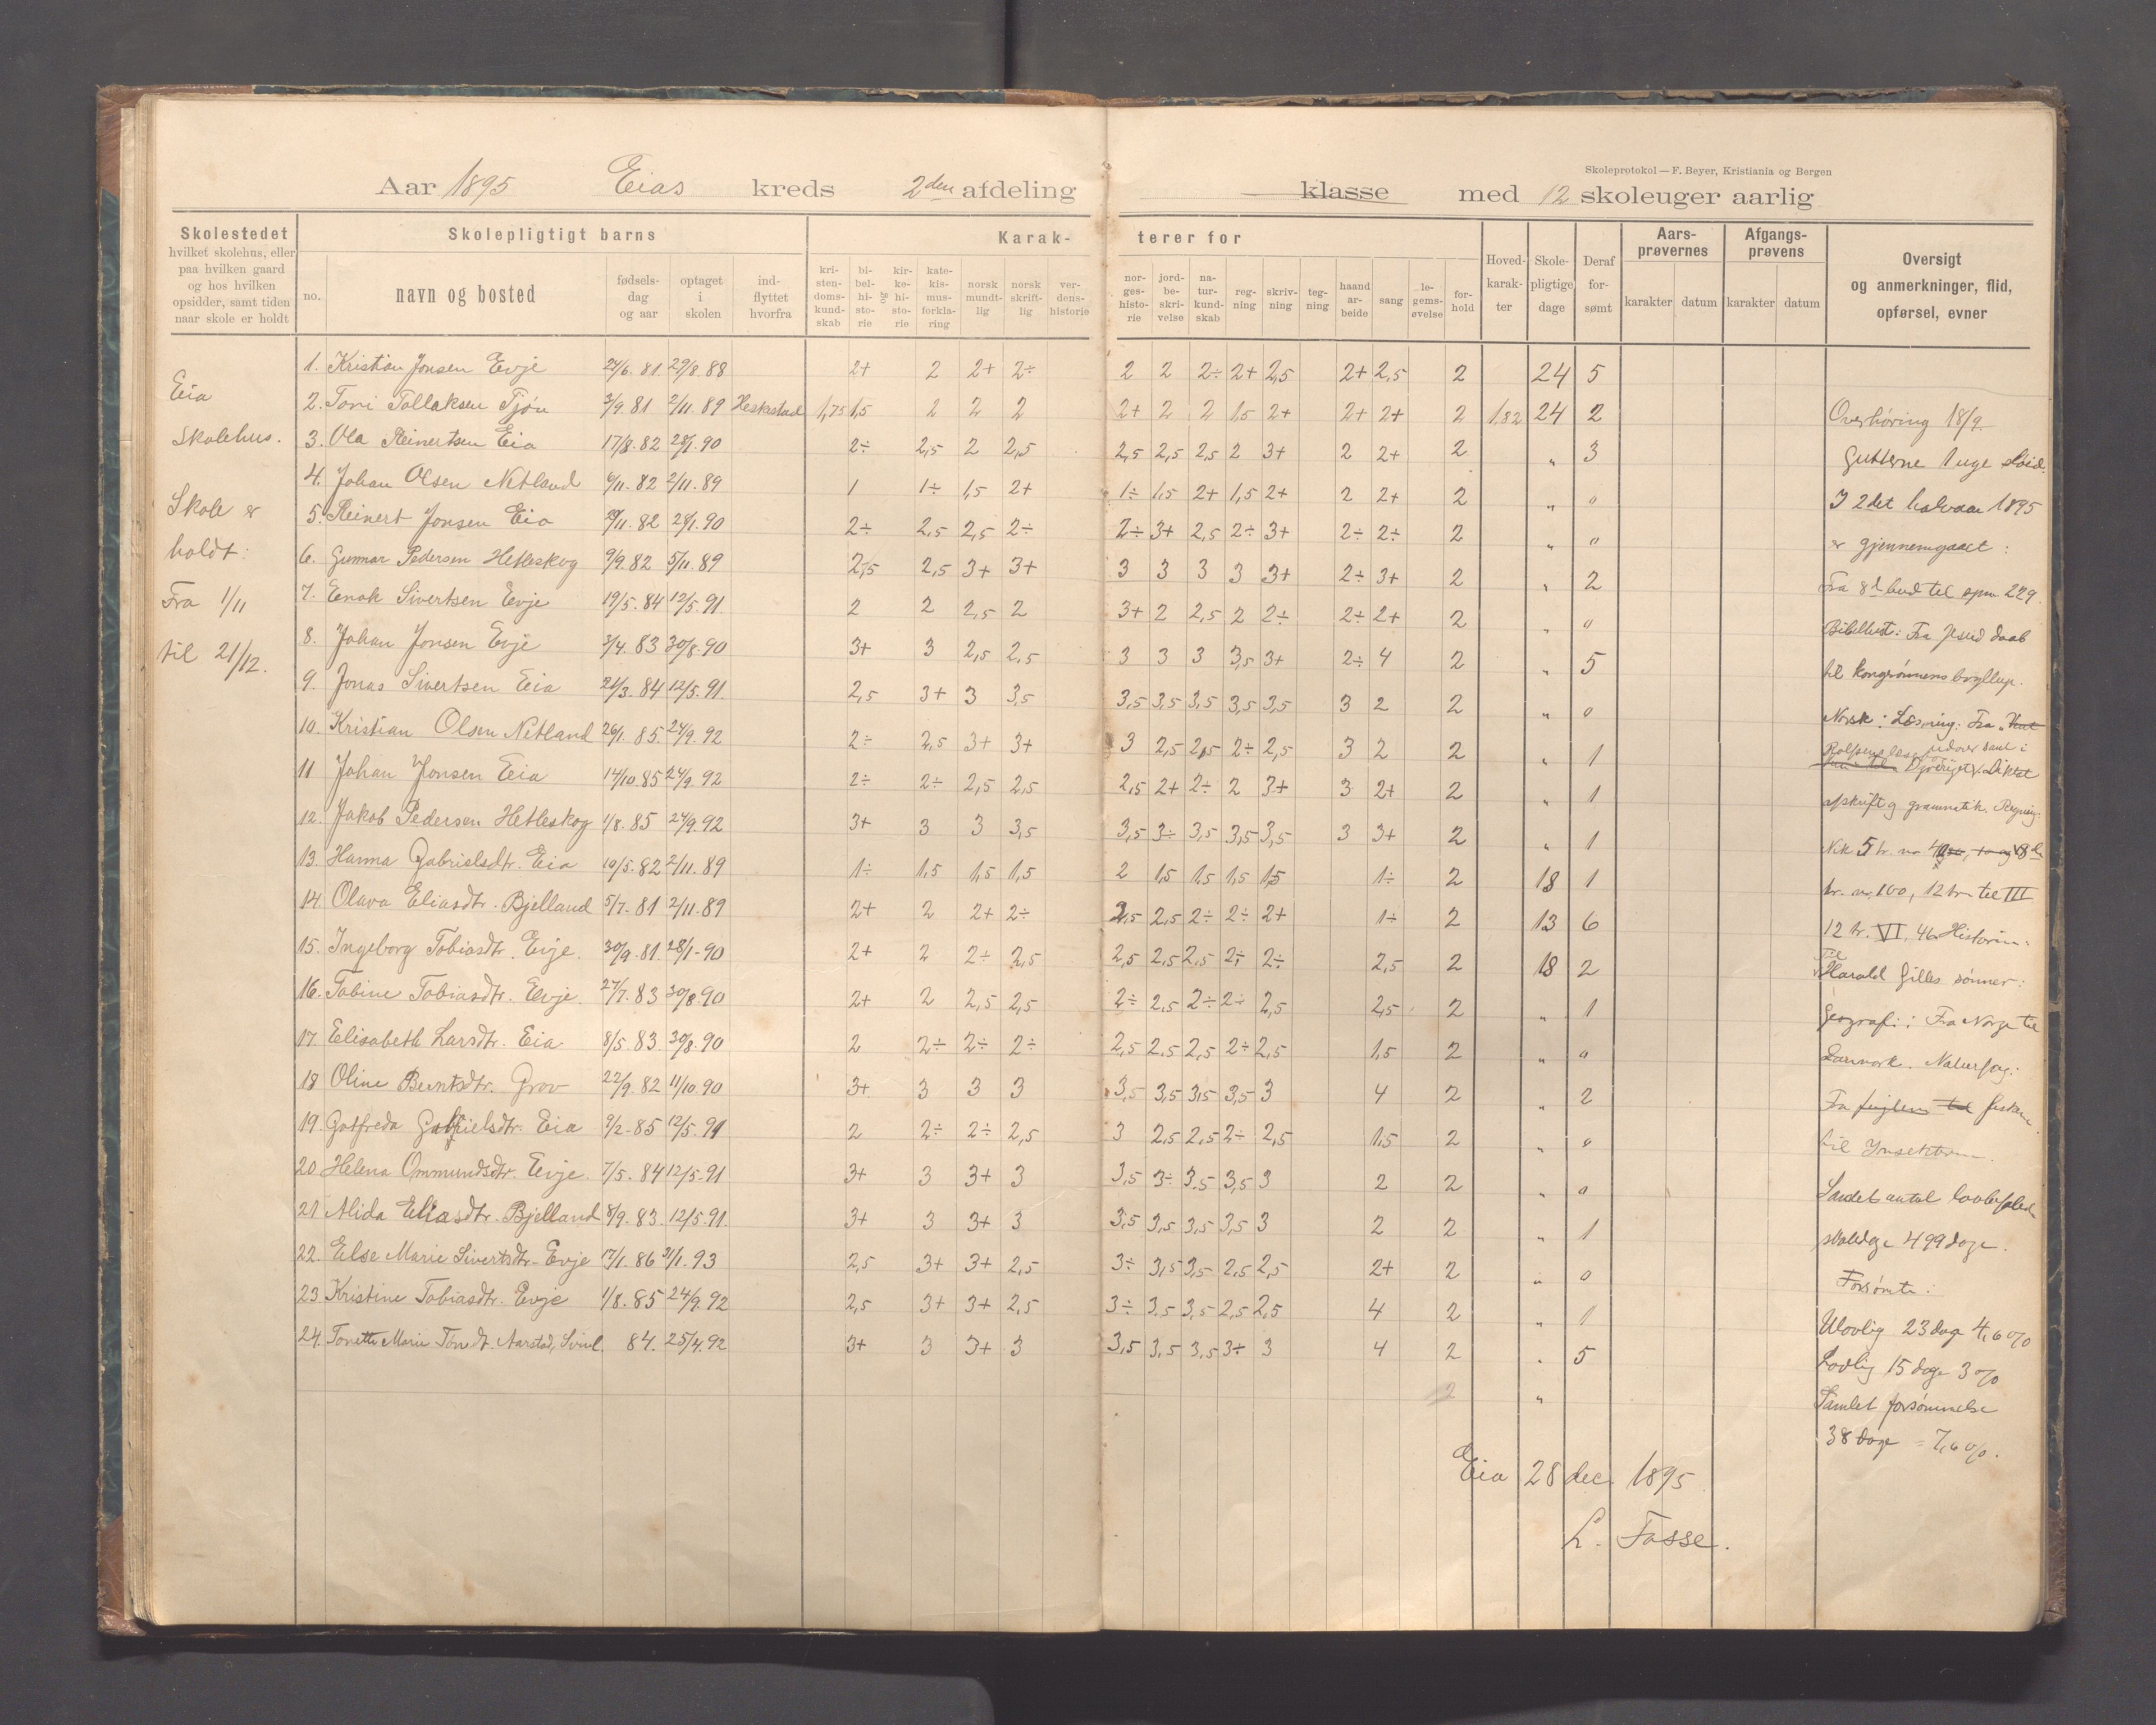 Skoleprotokol — F. Beyer, Kristiania og Bergen
Aar 1895 Eias kreds 2den afdeling klasse med 12 skoleuger aarlig
Skolestedet hvilket skolehus, eller paa hvilken gaard og hos hvilken opsidder, samt tiden naar skole er holdt
Skolepligtigt barns
no. navn og bosted fødsels-dag og aar optaget i skolen ind-flyttet hvorfra
Karak- terer for
kri-sten-doms-kund-skab bi-bel-hi-sto-rie og kir-ke-hi-sto-rie kate-kis-mus-forkla-ring norsk mundt-lig norsk skrift-lig ver-dens-historie
nor-ges-histo-rie jord-be-skri-velse na-tur-kund-skab reg-ning skriv-ning teg-ning haand ar-beide sang le-gems-øvelse for-hold
Hoved-karak-ter Skole-pligtige dage Deraf for-sømt
Aars-prøvernes karakter datum
Afgangs-prøvens karakter datum
Oversigt og anmerkninger, flid, opførsel, evner
Eia
Skolehus.
Skole er
holdt:
Fra 1/11
til 21/12.
1. Kristian Jonsen Evje 24/6. 81. 29/8. 88 2+ 2 2+ 2÷ 2 2 2÷ 2+ 2,5 2+ 2,5 2 24 5
2. Toni Tollaksen Tjøn 3/9. 81 2/11. 89 Heskestad 1,75 1,5 2 2 2 2+ 2 2 1,5 2+ 2+ 2+ 2 1,82 24 2
3. Ola Reinertsen Eia 17/8. 82 28/1. 90 2÷ 2,5 2 2,5 2,5 2,5 2,5 2 3+ 2 2+ 2 " 3
4. Johan Olsen Netland 6/11. 82 2/11. 89 1 1÷ 1,5 2+ 1÷ 1,5 2+ 1,5 2+ 2 2+ 2 " 0
5. Reinert Jonsen Eia 29/11. 82 28/1. 90 2÷ 2,5 2,5 2÷ 2÷ 3+ 2,5 2÷ 3+ 2÷ 2÷ 2 " 0
6. Gunnar Pedersen Hetleskog 9/9. 82 5/11. 89 2,5 2,5 3+ 3+ 3 3 3 3 3+ 2÷ 3+ 2 " 2
7. Enok Sivertsen Evje 19/5. 84 12/5. 91 2 2 2,5 2 3+ 2 2,5 2 2÷ 2÷ 2+ 2 " 0
8. Johan Jonsen Evje 3/4. 83 30/8. 90 3+ 3 2,5 2,5 3 3 3 3,5 3+ 2÷ 4 2 " 5
9. Jonas Sivertsen Eia 21/3. 84 12/5. 91 2,5 3+ 3 3,5 3,5 3,5 3,5 3,5 3,5 3 2 2 " 0
10. Kristian Olsen Netland 26/1. 85. 24/9. 92 2÷ 2,5 3+ 3+ 3 2,5 2,5 2÷ 2,5 3 2 2 " 1
11 Johan Jonsen Eia 14/10 85 24/9. 92 2÷ 2÷ 2,5 2,5 2,5 2+ 2÷ 2 3+ 3 2+ 2 " 1
12. Jakob Pedersen Hetleskog 1/8. 85 24/9. 92 3+ 3 3 3,5 3,5 3÷ 3,5 3,5 3,5 3 3+ 2 " 1
13. Hanna Gabrielsdtr. Eia 10/5. 82 2/11. 89 1÷ 1,5 1,5 1,5 2 1,5 1,5 1,5 1,5 1÷ 2 18 1
14 Olava Eliasdtr. Bjelland 5/7. 81 2/11. 89 2+ 2 2+ 2÷ 2,5 2,5 2÷ 2÷ 2+ 1÷ 2 13 6
15. Ingeborg Tobiasdtr. Evje. 30/9. 81. 28/1-90 2+ 2 2÷ 2,5 2,5 2,5 2,5 2÷ 2÷ 2,5 2 18 2
16. Tobine Tobiasdtr. Evje. 27/7. 83 30/8. 90 2+ 2 2,5 2,5 2÷ 2,5 2÷ 2÷ 2,5 2,5 2 " 1
17. Elisabeth Larsdtr. Eia 8/5. 83. 30/8. 90 2 2÷ 2÷ 2÷ 2,5 2,5 2,5 2÷ 2,5 1,5 2 " 0
18 Oline Berntsdtr. Grov 22/9. 82 11/10. 90 3+ 3 3 3 3,5 3,5 3,5 3,5 3 4 2 " 2
19. Gotfreda Gabrielsdtr. Eia 9/2-85 12/5. 91 2 2÷ 2÷ 2,5 3 2,5 2,5 2÷ 2,5 1,5 2 " 0
20. Helena Ommundsdtr. Evje. 7/5. 84 12/5-91 3+ 3 3+ 3 3,5 3÷ 3,5 3,5 3 2 2 " 0
21 Alida Eliasdtr. Bjelland 8/9. 83. 12/5-91. 3+ 3 3+ 3 3,5 3,5 3,5 3,5 3 2 2 " 1
22. Else Marie Sivertsdtr- Evje 17/1. 86 21/1. 93 2,5 3+ 3+ 2,5 3÷ 3,5 3,5 2,5 2,5 2+ 2 " 0
23. Kristine Tobiasdtr. Evje 1/8. 85 24/9. 92 2,5 3+ 3+ 2,5 3÷ 3,5 3,5 2,5 2,5 4 2 " 1
24. Tonette Marie Tønedt. Aarstad, 84. 25/4. 92 3+ 3 3+ 3 3,5 3,5 3,5 3÷ 3 4 2 " 5
2 "
Overhøring 18/9.
Gutterne 1 uge sløid.
I 2det halvaar 1895
er gjennemgaaet:
Fra 8d bud til spm. 229.
Bibelhist: Fra Jesu daab
til kongesønnens bryllup.
Norsk: Læsning: Fra
Rolfsens udover samt i
Diktat
afskrift og grammatik. Regning:
Nik 5 tr.
tr. no. 100, 12 tr til III
12 tr. VI, 46. Historie:
Til
Harald Gilles sønner:
Geografi: Fra Norge til
Danmark. Naturfag:
Fra fuglene til fiskene
til Insekterne.
Samlet antal lovbefalede
skoledage 499 dage.
Forsømte:
Ulovlig 23 dage 4,6 %
Lovlig 15 dage 3 %
Samlet forsømmelse
38 dage = 7,6 %.
Eia 28 dec. 1895
L. Fosse.